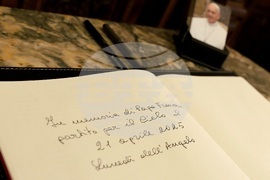 In memoria di Papa Francesco
partito per il Cielo il
21 aprile 2025
Lunedì dell'Angelo